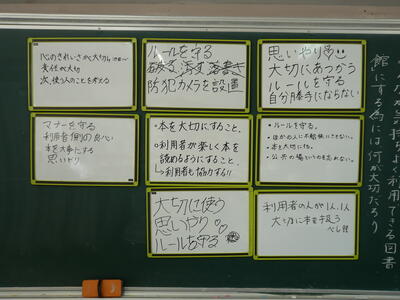 心のきれいさが大切
責任が大切
次、使う人のことを考える
ルールを守る
破る、汚す、落書き
防犯カメラを設置
思いやり
大切にあつかう
ルールを守る
自分勝手にならない
マナーを守る
利用者側の良心
本を大事にする
思いやり
・本を大切にすること。
・利用者が楽しく本を
読めるようにすること。
→利用者も協力する!!
・ルールを守る。
・ほかの人に不愉快にさせない。
・本を大切にする。
・公共の場というのを忘れない。
大切に使う
思いやり
ルールを守る
利用者の人が1人1人
大切に本を扱う
べし!!
が気持ちよく利用できる図書
館にする為には何が大切だろう